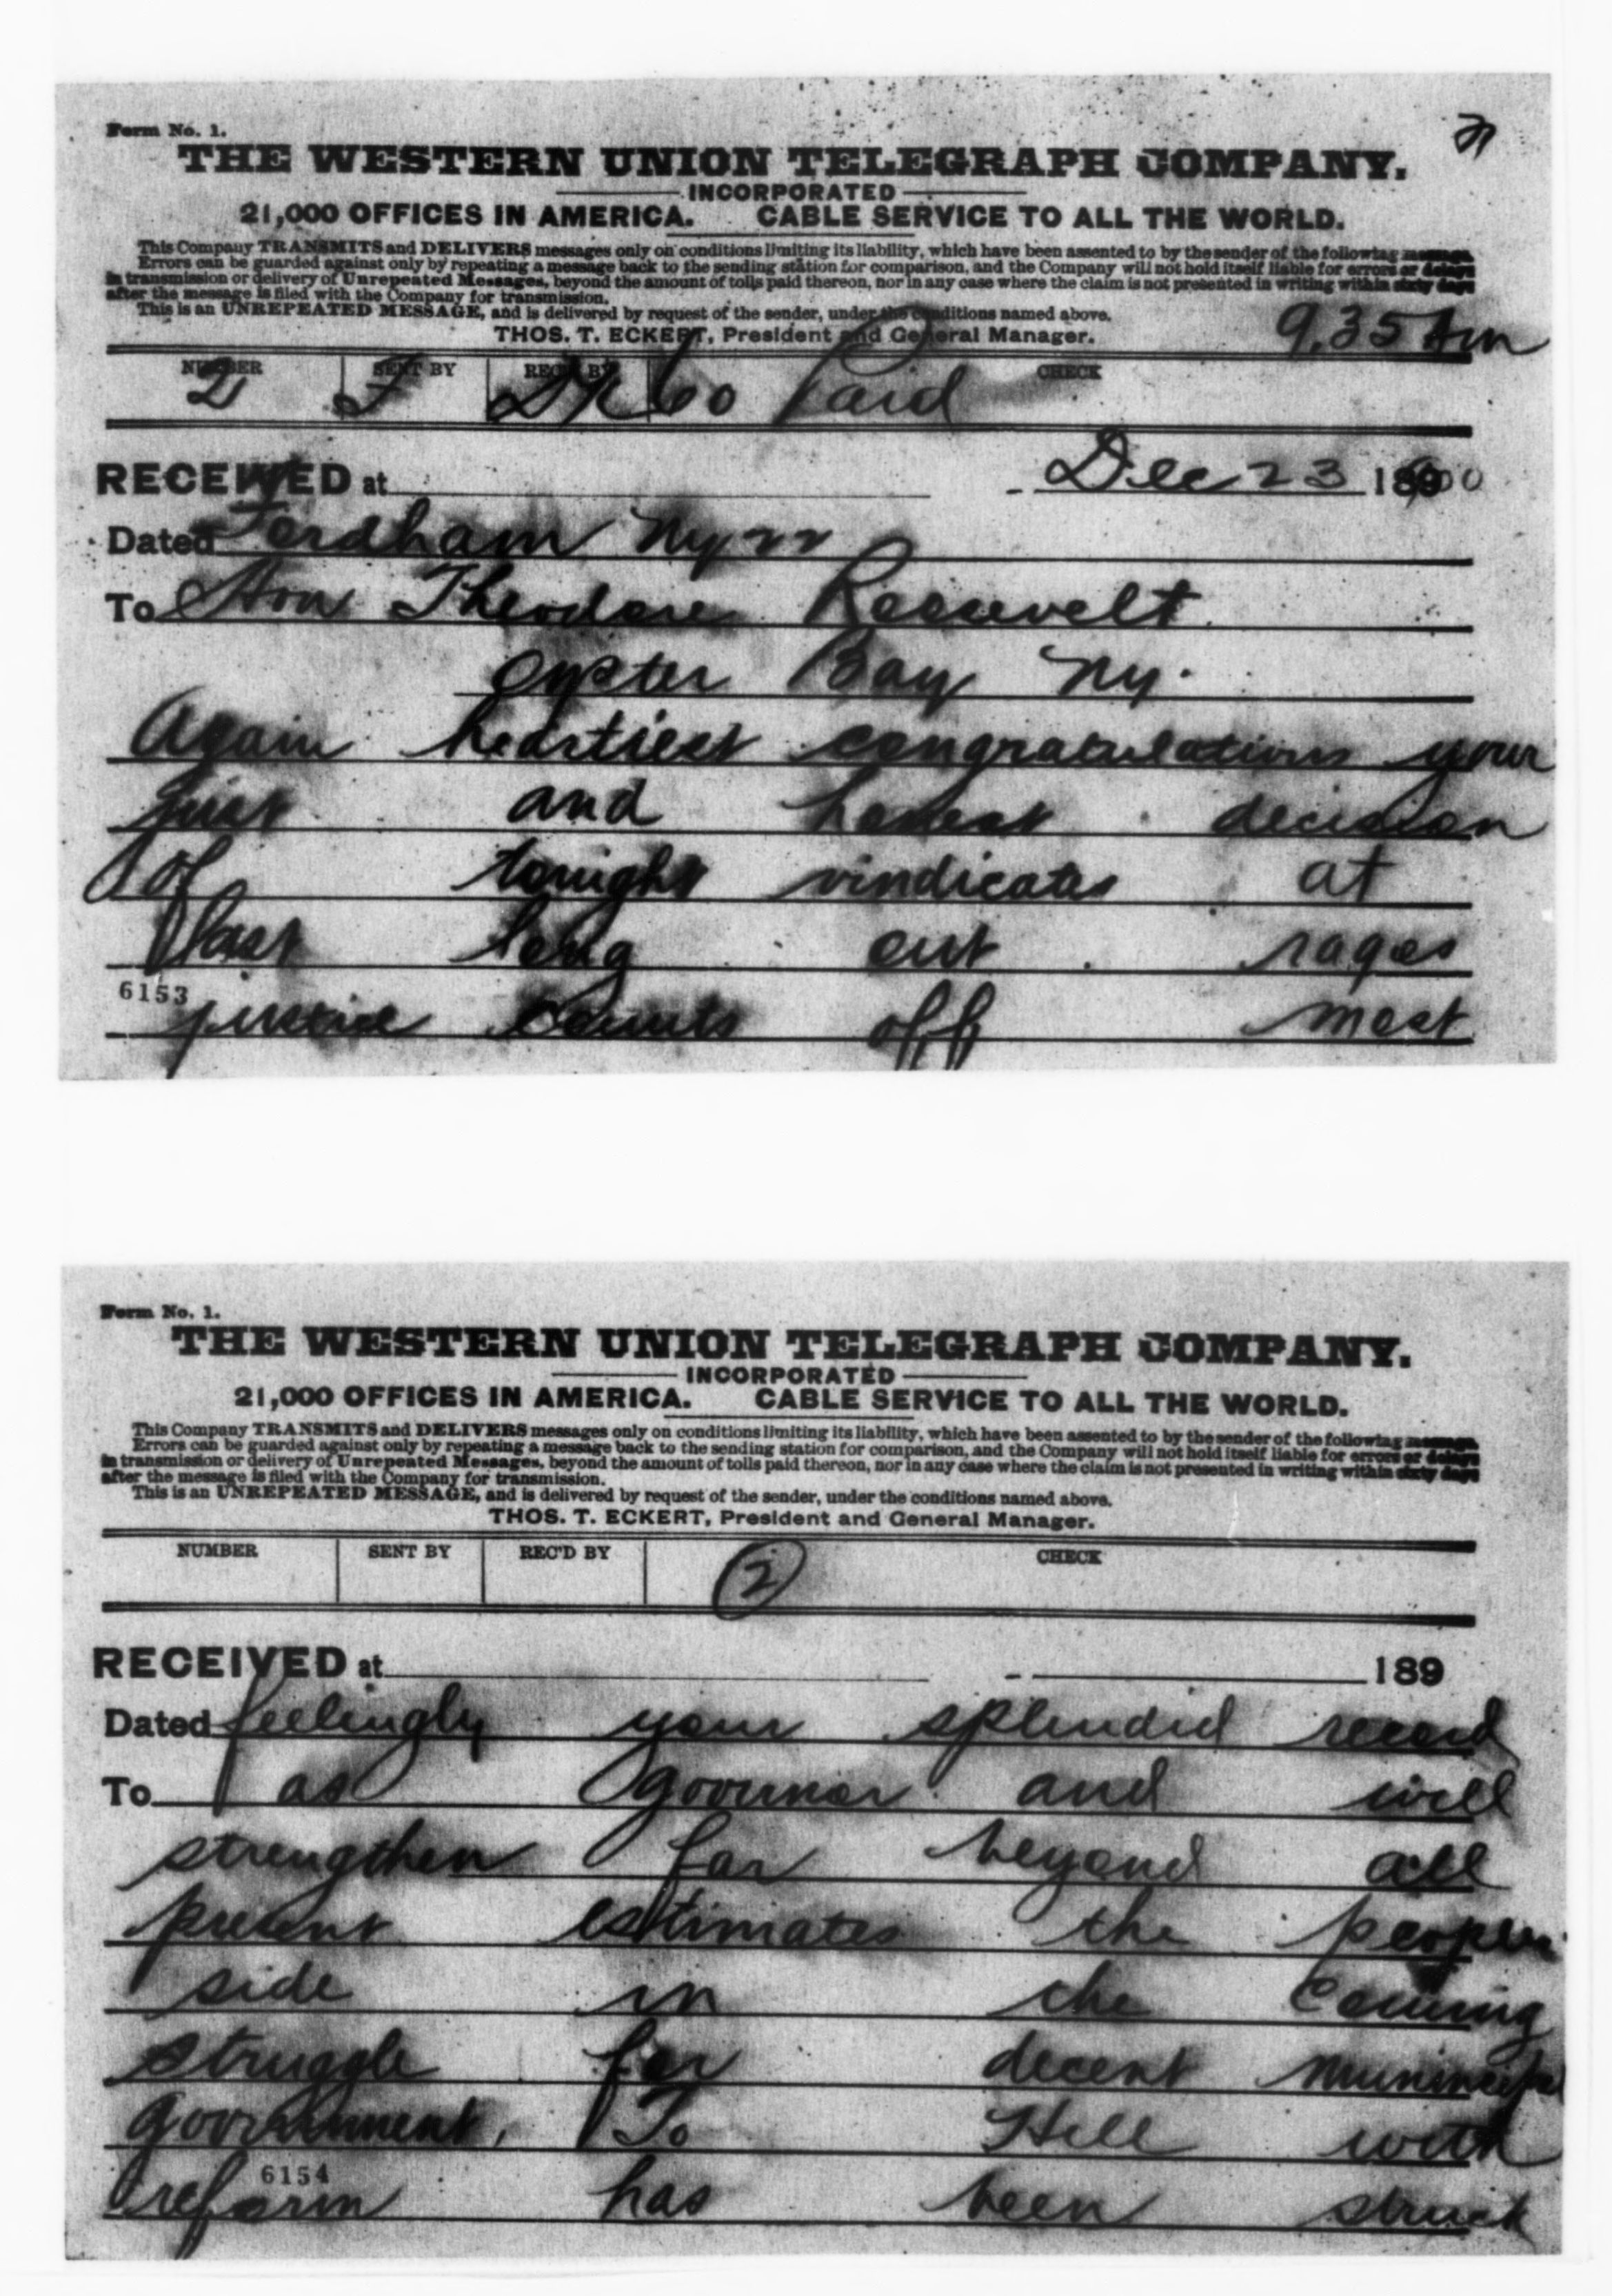 Form No. 1.
THE WESTERN UNION TELEGRAPH COMPANY.
INCORPORATED
21,000 OFFICES IN AMERICA. CABLE SERVICE TO ALL THE WORLD.
This Company TRANSMITS and DELIVERS messages only on conditions limiting its liability, which have been assented to by the sender of the following message.
Errors can be guarded against only by repeating a message back to the sending station for comparison, and the Company will not hold itself liable for errors or delays
in transmission or delivery of Unrepeated Messages, beyond the amount of tolls paid thereon, nor in any case where the claim is not presented in writing within sixty days
after the message is filed with the Company for transmission.
This is an UNREPEATED MESSAGE, and is delivered by request of the sender, under the conditions named above.
THOS. T. ECKERT, President and General Manager.
9.35 Am
NUMBER SENT BY REC'D BY CHECK
2 F 60 Paid
RECEIVED at Dec 23 1900
Dated Fordham Ny 22
To Hon Theodore Roosevelt
Oyster Bay Ny.
Again heartiest congratulations your
just and honest decision
of tonight vindicates at
last long out rages
6153
justice counts off most
Form No. 1.
THE WESTERN UNION TELEGRAPH COMPANY.
INCORPORATED
21,000 OFFICES IN AMERICA. CABLE SERVICE TO ALL THE WORLD.
This Company TRANSMITS and DELIVERS messages only on conditions limiting its liability, which have been assented to by the sender of the following message.
Errors can be guarded against only by repeating a message back to the sending station for comparison, and the Company will not hold itself liable for errors or delays
in transmission or delivery of Unrepeated Messages, beyond the amount of tolls paid thereon, nor in any case where the claim is not presented in writing within sixty days
after the message is filed with the Company for transmission.
This is an UNREPEATED MESSAGE, and is delivered by request of the sender, under the conditions named above.
THOS. T. ECKERT, President and General Manager.
NUMBER SENT BY REC'D BY CHECK
2
RECEIVED at 189
Dated feelingly your splendid record
To as governor and will
strengthen far beyond all
present estimates the peoples
side in the coming
struggle for decent municipal
government, To Hell with
6154
reform has been struck